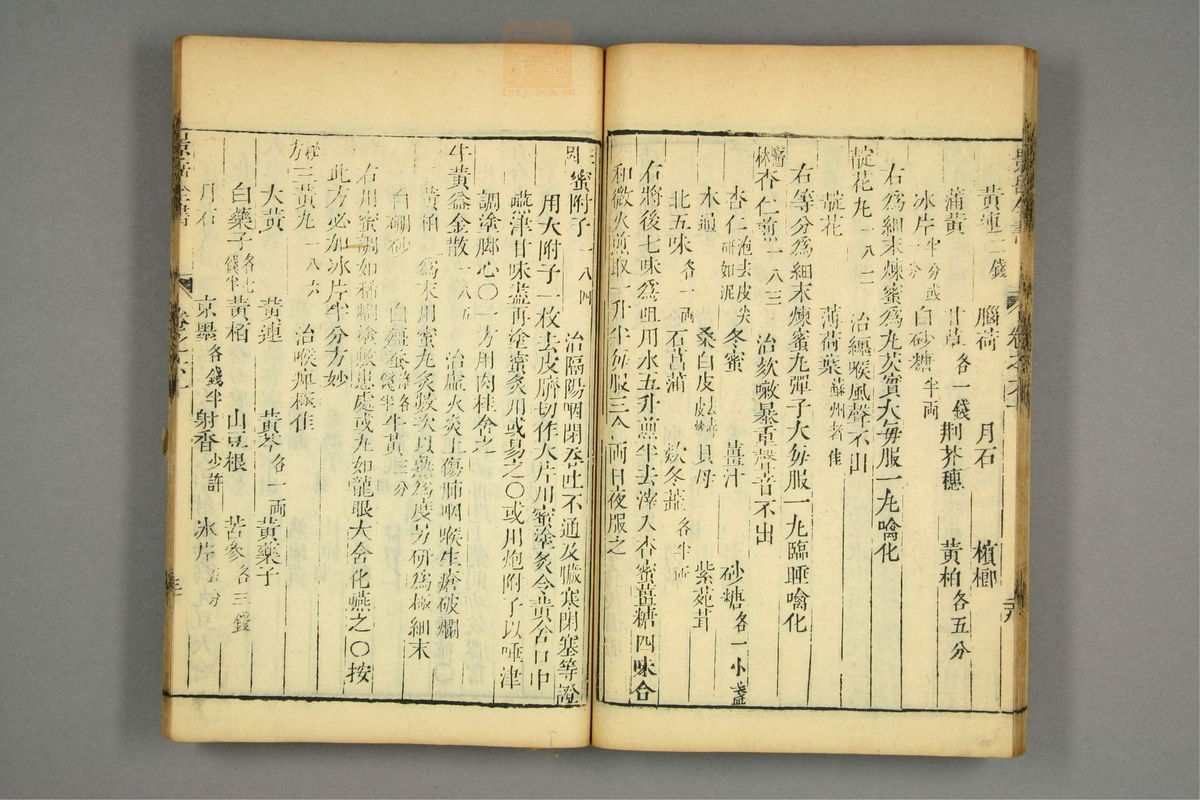 黄連二錢 腦荷 月石 檳榔
蒲黄 甘草各一錢 荆芥穗 黄柏各五分
氷片半分或一分 白砂糖半両
右爲細末煉蜜爲丸芡實大毎服一丸噙化
靛花丸一八二 治纒喉風聲不出
靛花 薄荷葉蘇州者佳
右等分爲細末煉蜜丸彈子大毎服一丸臨睡噙化
醫林杏仁煎一八三 治欬嗽暴重聲音不出
杏仁泡去皮尖研如泥 冬蜜 薑汁 砂糖各一小盞
木通 桑白皮 貝母 紫菀茸
北五味各一両 石菖蒲 欵冬蕋各半両
右將後七味㕮咀用水五升煎半去滓入杏蜜薑糖四味合
和微火煎取一升半毎服三合両日夜服之
蜜附子一八四 治隔陽咽閉吞吐不通及臟寒閉塞等證
用大附子一枚去皮臍切作大片用蜜塗炙令黄含口中
嚥津甘味盡再塗蜜炙用或易之〇或用炮附子以唾津
調塗脚心〇一方用肉桂含之
牛黄益金散一八五 治虚火炎上傷肺咽喉生瘡破爛
黄柏爲末用蜜丸炙數次以燕爲度另研爲極細末
白硼砂 白殭蠶 牛黄三分
右用蜜調如稀糊塗敷患處或丸如龍眼大含化嚥之〇按
此方必加冰片半分方妙
秘方三黄丸一八六 治喉痺極佳
大黄 黄連 黄芩各一両 黄藥子
白藥子各七錢半 黄栢 山豆根 苦參各三錢
月石 京墨各錢半 射香少許 氷片五分